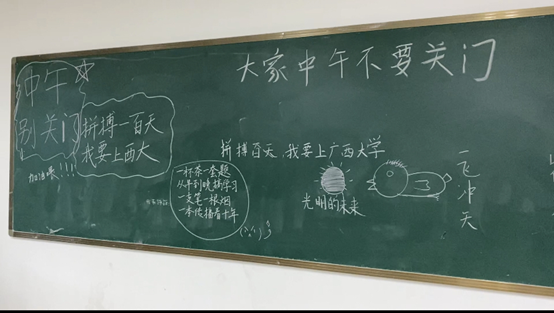 大家中午不要关门
中午
别关门
拼搏一百天
我要上西大
加油哦!!!
拼搏百天,我要上广西大学
一杯茶一套题
从早到晚搞学习
一支笔一根烟
一本传播看十年
光明的未来
一飞冲天